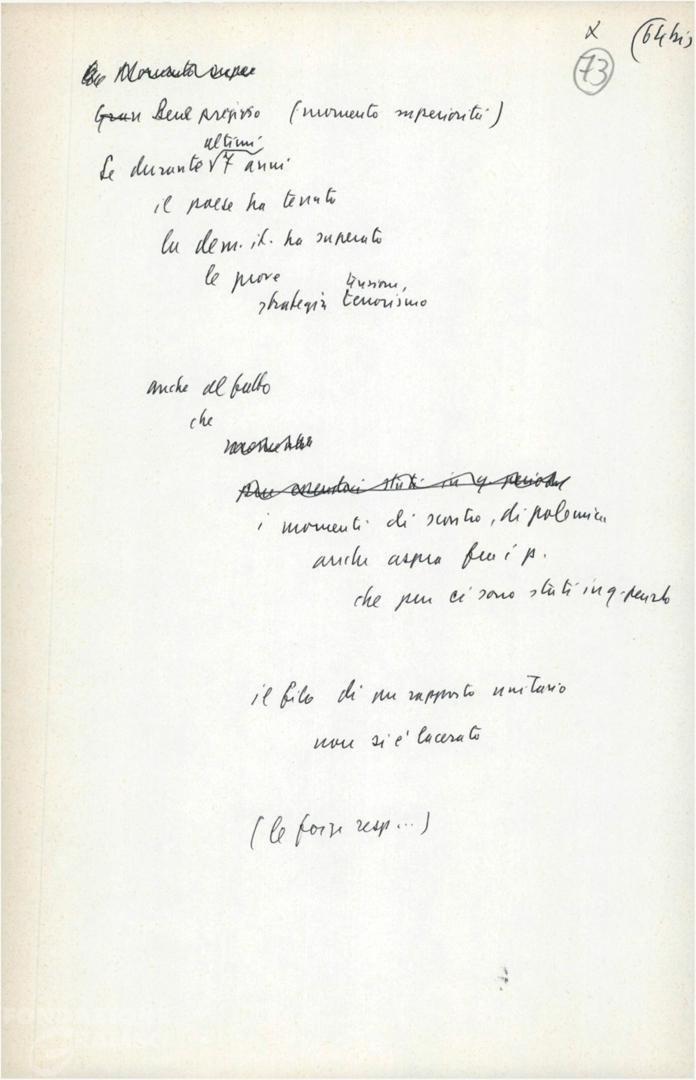 x (64 bis)
73
Momento super
Gran Bene prezioso (momento superiorità)
ultimi
Se durante √7 anni
il paese ha tenuto
la dem. it. ha superato
le prove tensioni,
strategia terrorismo
anche al fatto
che
momenti
pur essendoci stati in q. periodo
i momenti di scontro, di polemica
anche aspra fra i p.
che pur ci sono stati in q. periodo
il filo di un rapporto unitario
non si è lacerato
(le forze resp...)
FONDAZIONE
GRAMSCI